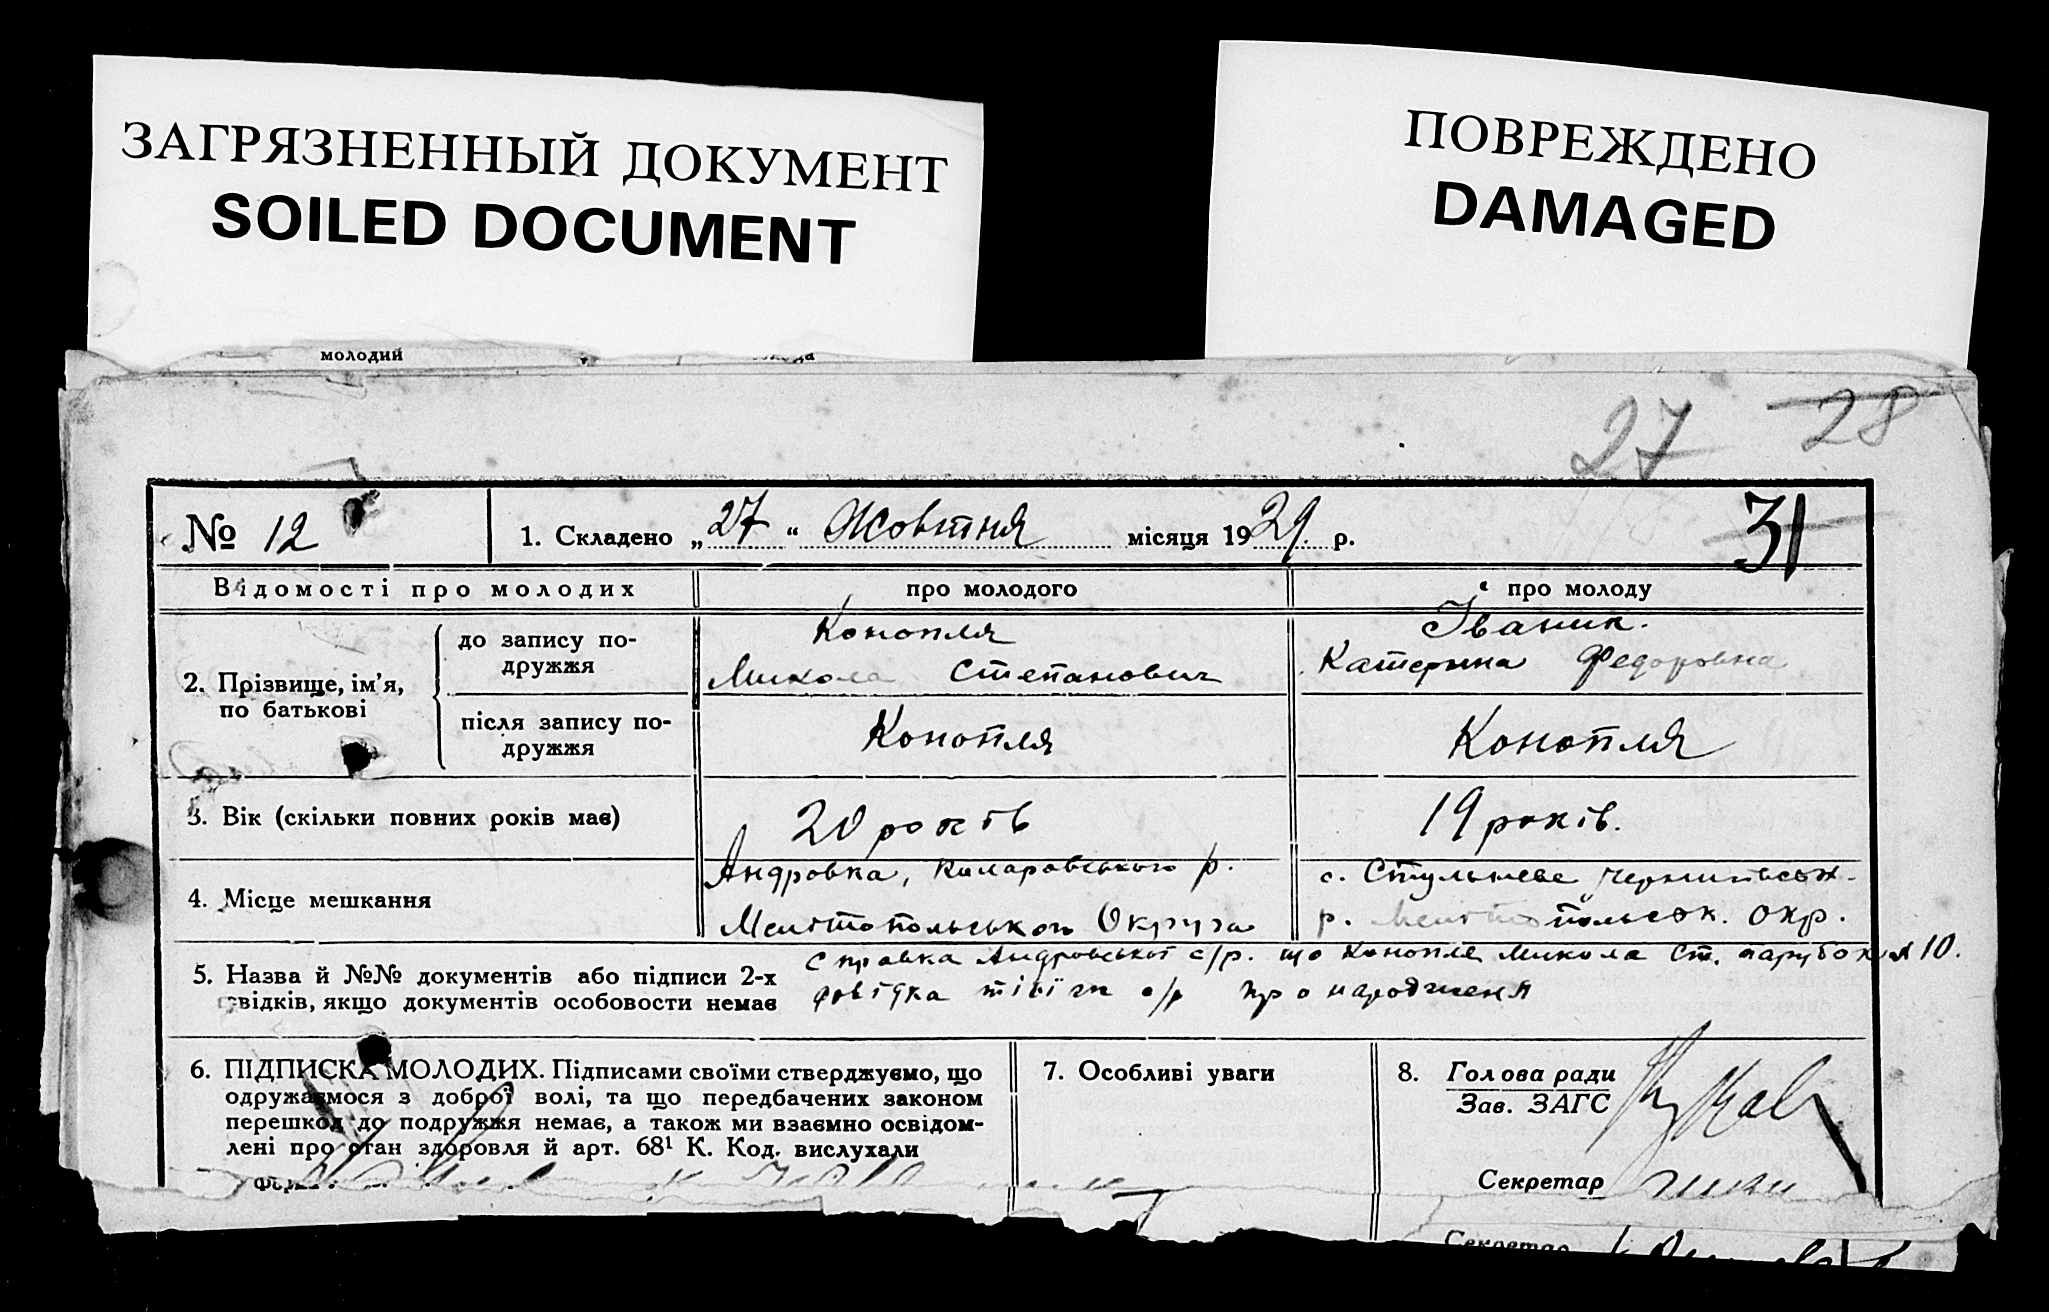 ЗАГРЯЗНЕННЫЙ ДОКУМЕНТ
SOILED DOCUMENT
ПОВРЕЖДЕНО
DAMAGED
молодий
27 28
31
№ 12
1. Складено „27“ Жовтня місяця 1929 р.
Відомості про молодих
про молодого
про молоду
2. Прізвище, ім'я, по батькові
до запису по-
дружжя
Конопля
Микола Степанович
Іваник.
Катерина Федоровна
після запису по-
дружжя
Конопля
Конопля
3. Вік (скільки повних років має)
20 років
19 років.
4. Місце мешкання
Андровка, р.
Мелітопольського Округа
с. Стульневе
р. Мелітопольськ. окр.
5. Назва й №№ документів або підписи 2-х
свідків, якщо документів особовости немає
справка Андровської с/р. що Конопля Микола Ст. парубок 10.
довідка тієї ж с/р про народження
6. ПІДПИСКА МОЛОДИХ. Підписами своїми стверджуємо, що
одружаємося з доброї волі, та що передбачених законом
перешкод до подружжя немає, а також ми взаємно освідом-
лені про стан здоровля й арт. 68¹ К. Код. вислухали
7. Особливі уваги
8. Голова ради
Зав. ЗАГС
Секретар
Секретар